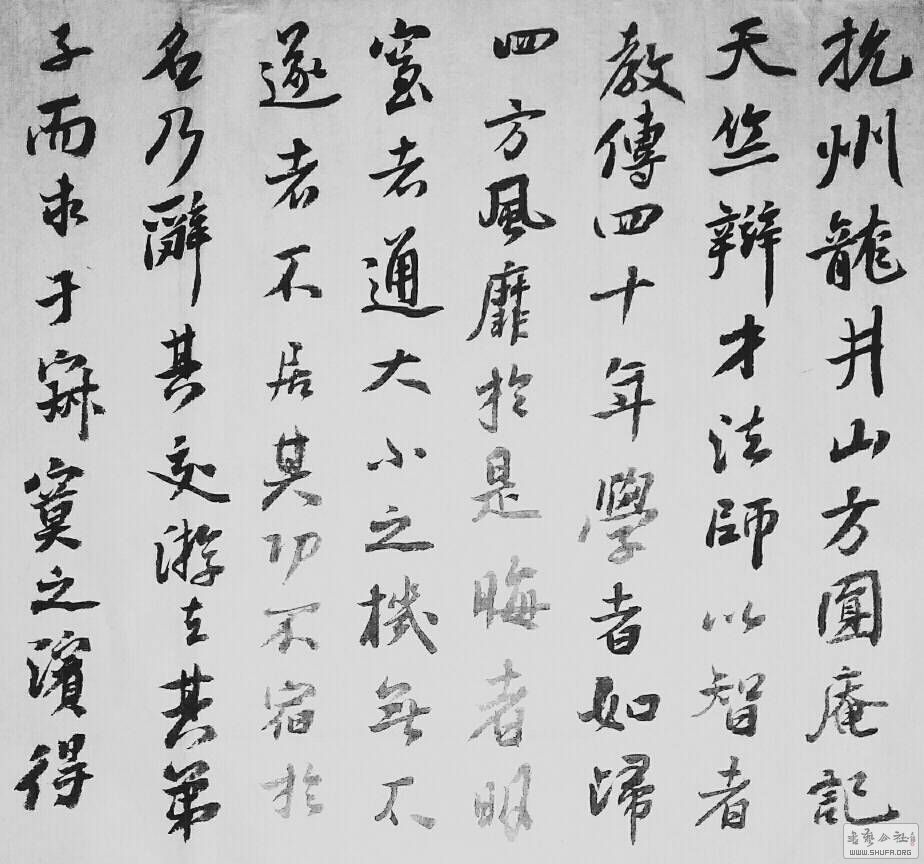 杭州龍井山方圓庵記
天竺辯才法師以智者
教傳四十年學者如歸
四方風靡於是晦者明
窒者通大小之機無不
遂者不居其功不宿於
名乃辭其交游去其弟
子而求于寂寞之濱得
書藝公社
WWW.SHUFA.ORG